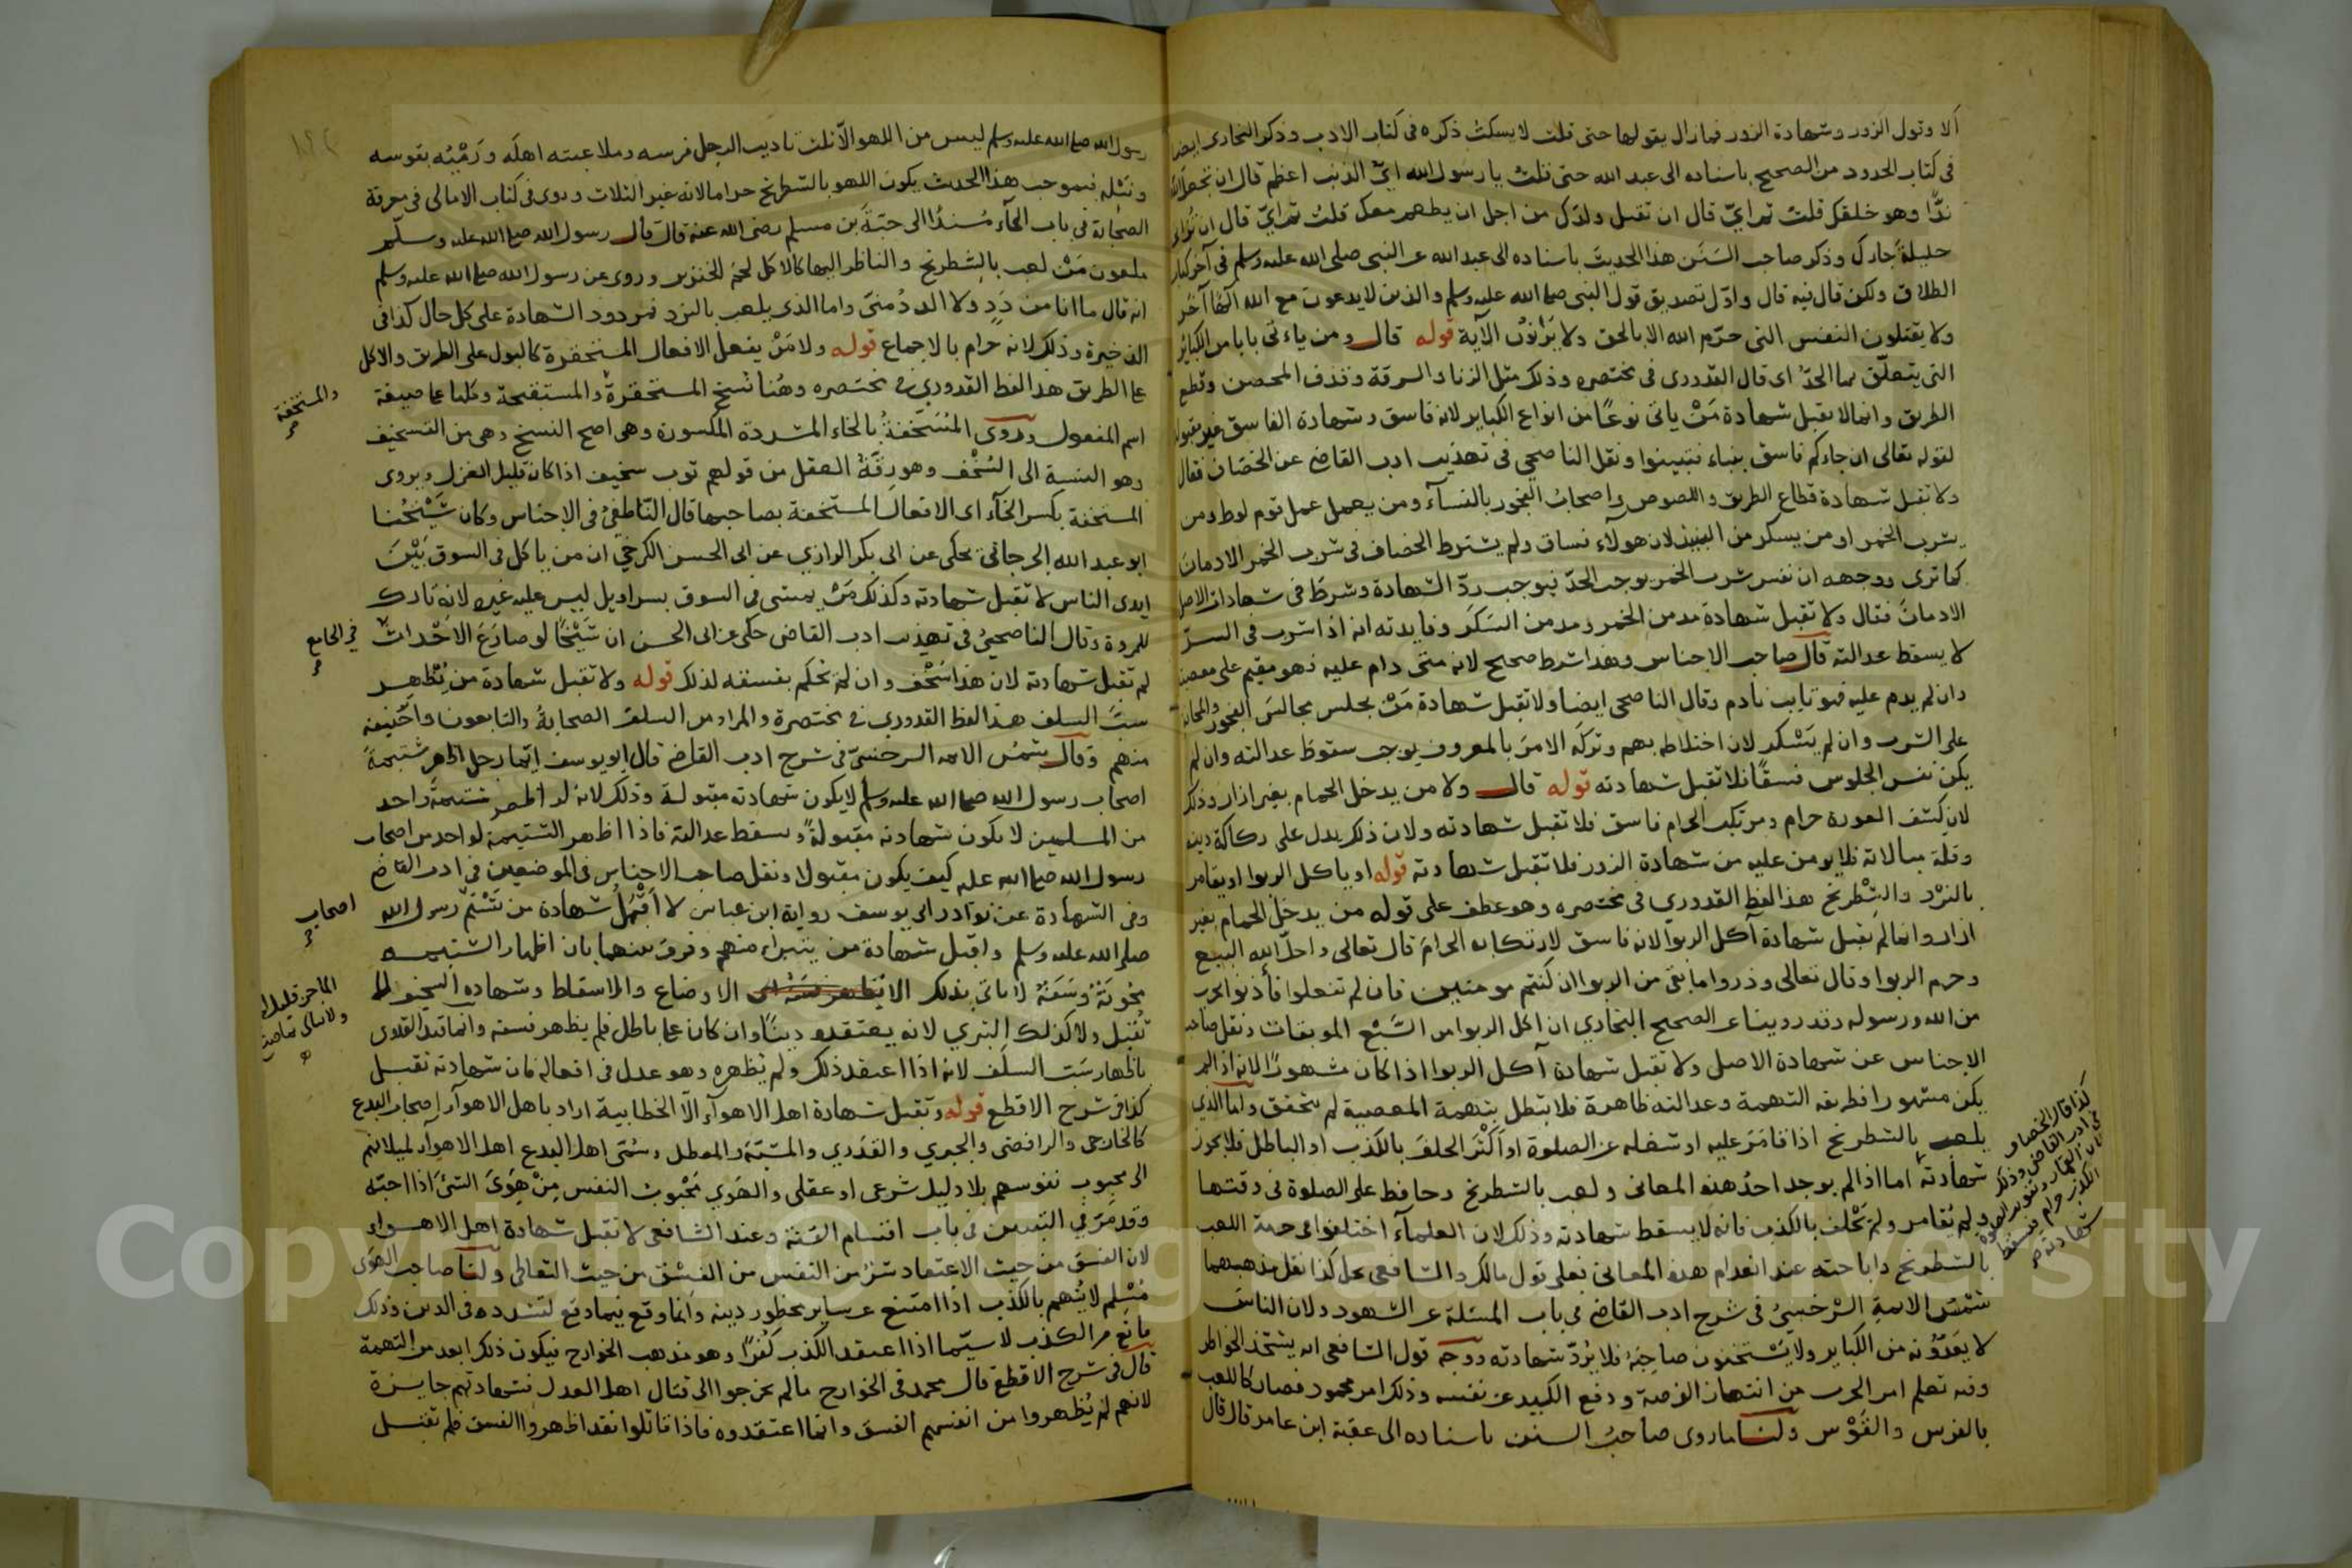 ألا وقول الزور وشهادة الزور فما زال يقولها حتى قلت لا يسكت ذكره فى كتاب الادب وذكر البخارى ايضا
فى كتاب الحدود من الصحيح باسناده الى عبد الله حتى قلت يا رسول الله اىّ الذنب اعظم قال ان تجعل لله
ندّا وهو خلقك قلت ثم اىّ قال ان تقتل ولدك من اجل ان يطعم معك قلت ثم اىّ قال ان تزانى
حليلة جارك وذكر صاحب السنن هذا الحديث باسناده الى عبد الله عن النبى صلى الله عليه وسلم فى آخر كتاب
الطلاق ولكن قال فيه قال وانزل تصديق قول النبى صلى الله عليه وسلم والذين لا يدعون مع الله الها آخر
ولا يقتلون النفس التى حرّم الله الا بالحق ولا يزنون الآية قوله قال ومن ياءتى بابا من الكبائر
التى يتعلّق بها الحدّ اى قال القدورى فى مختصره وذلك مثل الزنا والسرقة وقذف المحصن وقطع
الطريق وانما لا يقبل شهادة مَنْ ياتى نوعًا من انواع الكباير لانه فاسق وشهادة الفاسق غير مقبولة
لقوله تعالى ان جاءكم فاسق بنباء فتبينوا ونقل الناصحى فى تهذيب ادب القاضى عن الخصّاف فقال
ولا تقبل شهادة قطاع الطريق واللصوص واصحاب الفجور بالنسآء ومن يعمل عمل قوم لوط ومن
يشرب الخمر او من يسكر من النبيذ لان هولآء فساق ولم يشترط الخصاف فى شرب الخمر الادمان
كما ترى ووجهه ان نفس شرب الخمر يوجب الحدّ فيوجب ردّ الشهادة وشرط فى شهادات الاصل
الادمان فقال ولا تقبل شهادة مدمن الخمر ومدمن السَكَر وفايدته انه اذا شرب فى السرّ
لا يسقط عدالته قال صاحب الاجناس وهذا شرط صحيح لانه متى دام عليه فهو مقيم على معصية
وان لم يدم عليه فهو تايب نادم وقال الناصحى ايضا ولا تقبل شهادة مَنْ يجلس مجالس الفجور والمجانة
على الشرب وان لم يَسْكر لان اختلاطه بهم وتركه الامر بالمعروف يوجب سقوط عدالته وان لم
يكن نفس الجلوس فسقًا فلا تقبل شهادته قوله قال ولا من يدخل الحمام بغير ازار وذلك
لان كشف العورة حرام ومرتكب الحرام فاسق فلا تقبل شهادته ولان ذلك يدل على ركاكة دينه
وقلة مبالاته فلا يومن عليه من شهادة الزور فلا تقبل شهادته قوله او ياكل الربوا او يقامر
بالنرْد والشطرنج هذا لفظ القدورى فى مختصره وهو عطف على قوله من يدخل الحمام بغير
ازار وانما لم يقبل شهادة آكل الربوا لانه فاسق لارتكابه الحرام قال تعالى واحلّ الله البيع
وحرم الربوا وقال تعالى وذروا ما بقى من الربوا ان كنتم مومنين فان لم تفعلوا فأذنوا بحرب
من الله ورسوله وقد روينا عن الصحيح البخارى ان اكل الربوا من السَّبْع الموبقات ونقل صاحب
الاجناس عن شهادة الاصل ولا تقبل شهادة آكل الربوا اذا كان مشهورًا لانه اذا لم
يكن مشهورا فطريقه التهمة وعدالته ظاهرة فلا تبطل بتهمة المعصية لم يتحقق واما الذى
يلعب بالشطرنج اذا قامَرَ عليه او شغله عن الصلوة او اكثر الحلف بالكذب او الباطل فلا يجوز
شهادته اما اذا لم يوجد احدُ هذه المعانى ولعب بالشطرنج وحافظ على الصلوة فى وقتها
ولم يُقامر ولم يَحْلف بالكذب فانه لا يسقط شهادته وذلك لان العلمآء اختلفوا فى حرمة اللعب
بالشطرنج واباحته عند انعدام هذه المعانى فعلى قول مالك والشافعى يحل كذا نقل مذهبهما
شمس الايمة السَّرخسىُّ فى شرح ادب القاضى فى باب المسئلة عن الشهود ولان الناس
لا يَعُدّونه من الكباير ولا يَسْتخفون صاحبَهُ فلا يُردّ شهادته ووجه قول الشافعى انه يشحّذ الخواطر
وفيه تعلم امر الحرب من انتهاز الفرصة ودفع المكيد عن نفسه وذلك امر محمود فصار كاللعب
بالفرس والقَوْس ولنا ما روى صاحبُ السنن باسناده الى عقبة ابن عامر قال قال
كذا قال الخصاف
فى ادب القاضى وذلك
لان القمار وتفويت الصلوة
الكذب حرام فتسقط
شهادته
رسول الله صلى الله عليه وسلم ليس من اللهو الّا ثلث تاديب الرجل فرسه وملاعبته اهلَه ورَمْيُه بقوسه
ونَبْله فبموجب هذا الحديث يكون اللهو بالشطرنج حراما لانه غير الثلاث وروى فى كتاب الامالى فى معرفة
الصحابة فى باب الحآء مُسندًا الى حبّة بن مسلم رضى الله عنه قال قال رسول الله صلى الله عليه وسلّم
ملعون مَنْ لعب بالشطرنج والناظر اليها كالاكل لحم الخنزير وروى عن رسول الله صلى الله عليه وسلم
انه قال ما انا من دَدٍ ولا الددُ منىّ واما الذى يلعب بالنرد فمردود الشهادة على كل حال كذا فى
الذخيرة وذلك لانه حرام بالاجماع قوله ولا مَنْ يفعل الافعال المستحقرة كالبول على الطريق والاكل
على الطريق هذا لفظ القدورى فى مختصره وهُنا نُسخ المستحقرة والمستقبحة وكلها على صيغة
والمستخفة
اسم المفعول وروى المُسَخِّفةُ بالخاء المشددة المكسورة وهى اصح النسخ وهى من التسخيف
وهو النسبة الى السُخْف وهو رِقّةُ العقل من قولهم ثوب سخيف اذا كان قليل الغزل ويروى
المستخفة بكسر الخآء اى الافعال المستخفة بصاحبها قال النّاطفىُّ فى الاجناس وكان شَيْخُنا
ابو عبد الله الجرجانى يحكى عن ابى بكر الرازي عن ابى الحسن الكرخىّ ان من ياكل فى السوق بَيْنَ
ايدى الناس لا تقبل شهادته وكذلك مَنْ يمشى فى السوق بسراويل ليس عليه غيره لانه تارك
للمروة وقال الناصحىُّ فى تهذيب ادب القاضى حكى عن ابى الحسن ان شَيْخًا لو صارَعَ الاَحْداثَ
فى الجامع
لم تقبل شهادته لان هذا سُخْف وان لم نحكم بفسقه لذلك قوله ولا تقبل شهادة من يُظهر
سبَّ السلف هذا لفظ القدورى فى مختصرة والمراد من السلف الصحابةُ والتابعون وابو حنيفه
منهم وقال شمسُ الايمه السرخسىّ فى شرح ادب القاضى قال ابو يوسف ايّما رجل اظهر شتيمةَ
اصحاب رسول الله صلى الله عليه وسلم لا يكون شهادته مقبولة وذلك لانه لو اظهر شتيمة واحد
من المسلمين لا يكون شهادته مقبولةً ويسقط عدالته فاذا اظهر الشتيمة لواحد من اصحاب
رسول الله صلى الله عليه كيف يكون مقبولا ونقل صاحب الاجناس فى الموضعين فى ادب القاضى
وفى الشهادة عن نوادر ابى يوسف رواية ابن عباس لا اقْبَلُ شهادة من يَشْتم رسول الله
اصحاب
صلى الله عليه وسلم واقبل شهادة من يتبراء منهم وفرق بينهما بان اظهار الشتيمه
مجونَةٌ وسَفَهٌ لا ياتى بذلك الا الاوضاع والاسقاط وشهادة السخيف لا
الماجن قليل
ولا يبالى
تُقبل ولا كذلك التبري لانه يعتقده دينًا وان كان على باطل فلم يظهر فسقه وانما قيد القدورى
باظهار سَبّ السلَف لانه اذا اعتقد ذلك ولم يُظهره وهو عدل فى افعاله فان شهادته تقبل
كذا فى شرح الاقطع قوله وتقبل شهادة اهل الاهوآء الّا الخطابية اراد باهل الاهوآء اصحاب البدع
كالخارجى والرافضى والجبري والقَدَري والمشبّه والمعطل وسُمّى اهل البدع اهل الاهوآء لميلانهم
الى محبوب نفوسهم بلا دليل شرعى او عقلى والهَوي مَحْبوبُ النفس مِنْ هَوَىَ الشئ اذا احبّه
وقد مَرّ فى التبيين فى باب اقسام السُنّة وعند الشافعى لا تقبل شهادة اهل الاهواء
لان الفسق من حيث الاعتقاد شرٌّ من الفسق من حيث التعاطى ولنا صاحب الهَوَى
مُسْلم لا يُتّهم بالكذب اذا امتنع عن ساير محظور دينه وانما وقع فيما وقع لتشدده فى الدين وذلك
مانع من الكذب لا سيّما اذا اعتقد الكذب كُفرًا وهو مذهب الخوارج فيكون ذلك ابعد من التهمة
قال فى شرح الاقطع قال محمد فى الخوارج ما لم يخرجوا الى قتال اهل العدل فشهادتهم جايزة
لانهم لم يُظهروا من انفسهم الفسق وانما اعتقدوه فاذا قاتلوا فقد اظهروا الفسق فلم تقبل
Copyright © King Saud University